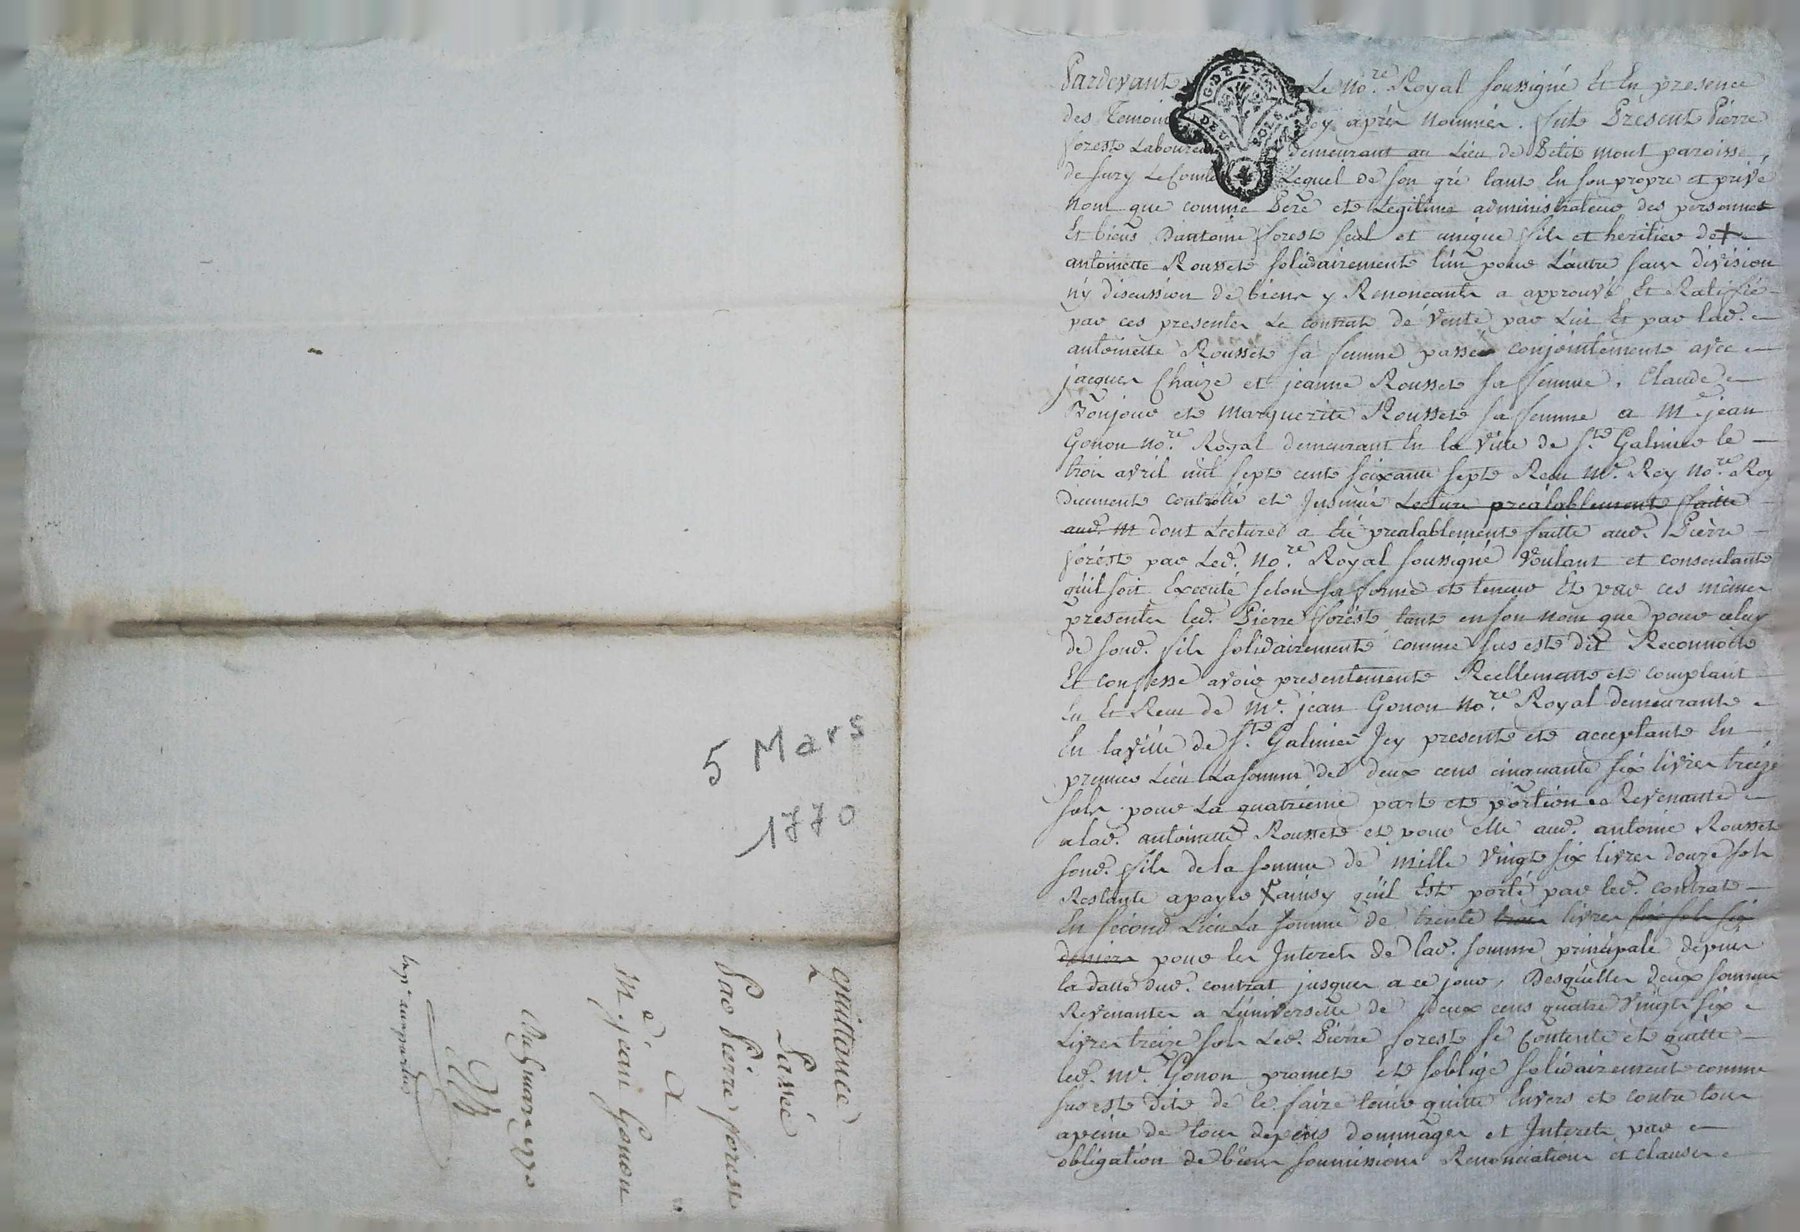 Pardevant Le no.re Royal soussigné Et En presence
des Temoins cy après nommés. fut Présent Pierre
forest Laboureur demeurant au Lieu de Petit mont paroisse
de Sury Le Comte Lequel de son gré tant En son propre et privé
nom que comme Père et Legitime administrateur des personnes
Et biens Dantoine forest seul et unique fils et heritier de
antoinette Rousset solidairement lun pour Lautre sans division
ny discussion de biens y Renonçants a approuvé Et Ratifié
par ces presentes Le contrat de vente par Lui Et par lad.
antoinette Rousset sa femme passé conjointement avec
jacques Chaize et jeanne Rousset sa femme, Claude
Bonjour et marguerite Rousset sa femme a Me jean
Gonon no.re Royal demeurant En la ville de St. Galmier le
trois avril mil sept cent soixante sept Recu Me. Rey no.re Roy
duement controllé et Insinué Lecture préalablement faitte
aud. M dont Lecture a été prealablement faitte aud. Pierre
forest par Led. no.re Royal soussigné voulant et consentant
quil soit Executé selon sa forme et teneur Et par ces mêmes
presentes led. Pierre forest tant en son nom que pour celuy
de soud. fils solidairement comme sus est dit Reconnoit
Et confesse avoir presentement Reellement et comptant
Eu Et Recu de Me. jean Gonon no.re Royal demeurant
En la ville de St. Galmier Icy present et acceptant En
premier Lieu La somme de deux cens cinquante six livres treize
sols pour La quatrieme part et portion Revenante
a lad. antoinette Rousset et pour elle aud. antoine Rousset
soud. fils de la somme de mille vingt six livres douze sols
Restante a payer ainsy quil Est porté par led. contrat
En second Lieu La somme de trente trois livres six sols six
deniers pour les Interets de lad. somme principale depuis
la datte dud. contrat jusques a ce jour, Desquelles deux sommes
Revenantes a Luniverselle de deux cens quatre vingts six
Livres treize sols Led. Pierre forest se Contente et quitte
led. Me. Gonon promet et soblige solidairement comme
sus est dit de le faire tenir quitte Envers et contre tous
apeine de tous depens dommages et Interets par
obligation de biens soumissions Renonciations et clauses
5 Mars
1770
quittance
Passée
Par Pierre forest
A
Me jean Gonon
Du 5 mars 1770